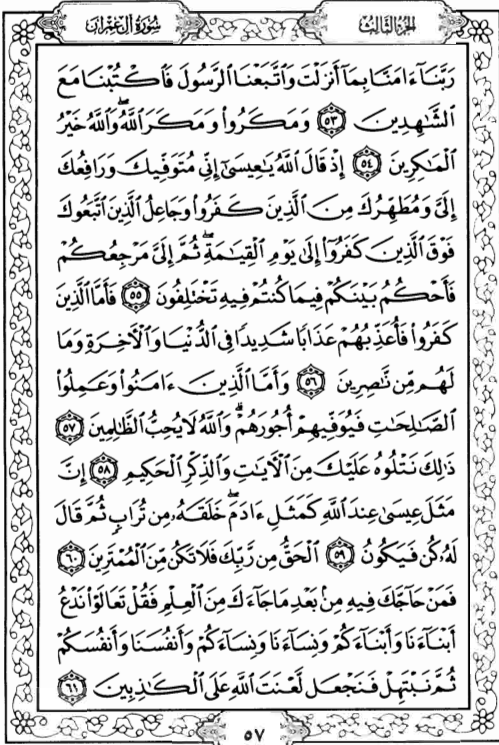 سُورَةُ آلِ عِمْرَان
الجزء الثالث
رَبَّنَآ ءَامَنَّا بِمَآ أَنزَلْتَ وَٱتَّبَعْنَا ٱلرَّسُولَ فَٱكْتُبْنَا مَعَ
ٱلشَّٰهِدِينَ ٥٣ وَمَكَرُوا۟ وَمَكَرَ ٱللَّهُ ۖ وَٱللَّهُ خَيْرُ
ٱلْمَٰكِرِينَ ٥٤ إِذْ قَالَ ٱللَّهُ يَٰعِيسَىٰٓ إِنِّى مُتَوَفِّيكَ وَرَافِعُكَ
إِلَىَّ وَمُطَهِّرُكَ مِنَ ٱلَّذِينَ كَفَرُوا۟ وَجَاعِلُ ٱلَّذِينَ ٱتَّبَعُوكَ
فَوْقَ ٱلَّذِينَ كَفَرُوٓا۟ إِلَىٰ يَوْمِ ٱلْقِيَٰمَةِ ۖ ثُمَّ إِلَىَّ مَرْجِعُكُمْ
فَأَحْكُمُ بَيْنَكُمْ فِيمَا كُنتُمْ فِيهِ تَخْتَلِفُونَ ٥٥ فَأَمَّا ٱلَّذِينَ
كَفَرُوا۟ فَأُعَذِّبُهُمْ عَذَابًا شَدِيدًا فِى ٱلدُّنْيَا وَٱلْءَاخِرَةِ وَمَا
لَهُم مِّن نَّٰصِرِينَ ٥٦ وَأَمَّا ٱلَّذِينَ ءَامَنُوا۟ وَعَمِلُوا۟
ٱلصَّٰلِحَٰتِ فَيُوَفِّيهِمْ أُجُورَهُمْ ۗ وَٱللَّهُ لَا يُحِبُّ ٱلظَّٰلِمِينَ ٥٧
ذَٰلِكَ نَتْلُوهُ عَلَيْكَ مِنَ ٱلْءَايَٰتِ وَٱلذِّكْرِ ٱلْحَكِيمِ ٥٨ إِنَّ
مَثَلَ عِيسَىٰ عِندَ ٱللَّهِ كَمَثَلِ ءَادَمَ ۖ خَلَقَهُۥ مِن تُرَابٍ ثُمَّ قَالَ
لَهُۥ كُن فَيَكُونُ ٥٩ ٱلْحَقُّ مِن رَّبِّكَ فَلَا تَكُن مِّنَ ٱلْمُمْتَرِينَ ٦٠
فَمَنْ حَآجَّكَ فِيهِ مِنۢ بَعْدِ مَا جَآءَكَ مِنَ ٱلْعِلْمِ فَقُلْ تَعَالَوْا۟ نَدْعُ
أَبْنَآءَنَا وَأَبْنَآءَكُمْ وَنِسَآءَنَا وَنِسَآءَكُمْ وَأَنفُسَنَا وَأَنفُسَكُمْ
ثُمَّ نَبْتَهِلْ فَنَجْعَل لَّعْنَتَ ٱللَّهِ عَلَى ٱلْكَٰذِبِينَ ٦١
٥٧